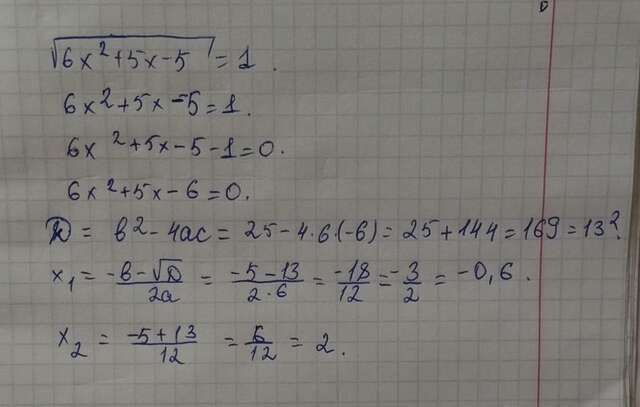 √6x²+5x-5 = 1.
6x²+5x-5=1.
6x²+5x-5-1=0.
6x²+5x-6=0.
D = b²-4ac = 25-4·6·(-6) = 25+144 = 169 = 13².
x₁ = -b-√D/2a = -5-13/2·6 = -18/12 = -3/2 = -0,6.
x₂ = -5+13/12 = 6/12 = 2.